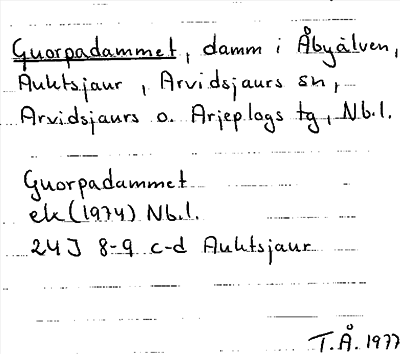 Guorpadammet, damm i Åbyälven,
Auktsjaur, Arvidsjaurs sn,
Arvidsjaurs o. Arjeplogs tg, Nb.l.
Guorpadammet
ek (1974) Nb.l.
24J 8-9 c-d Auktsjaur
T.Å. 1977